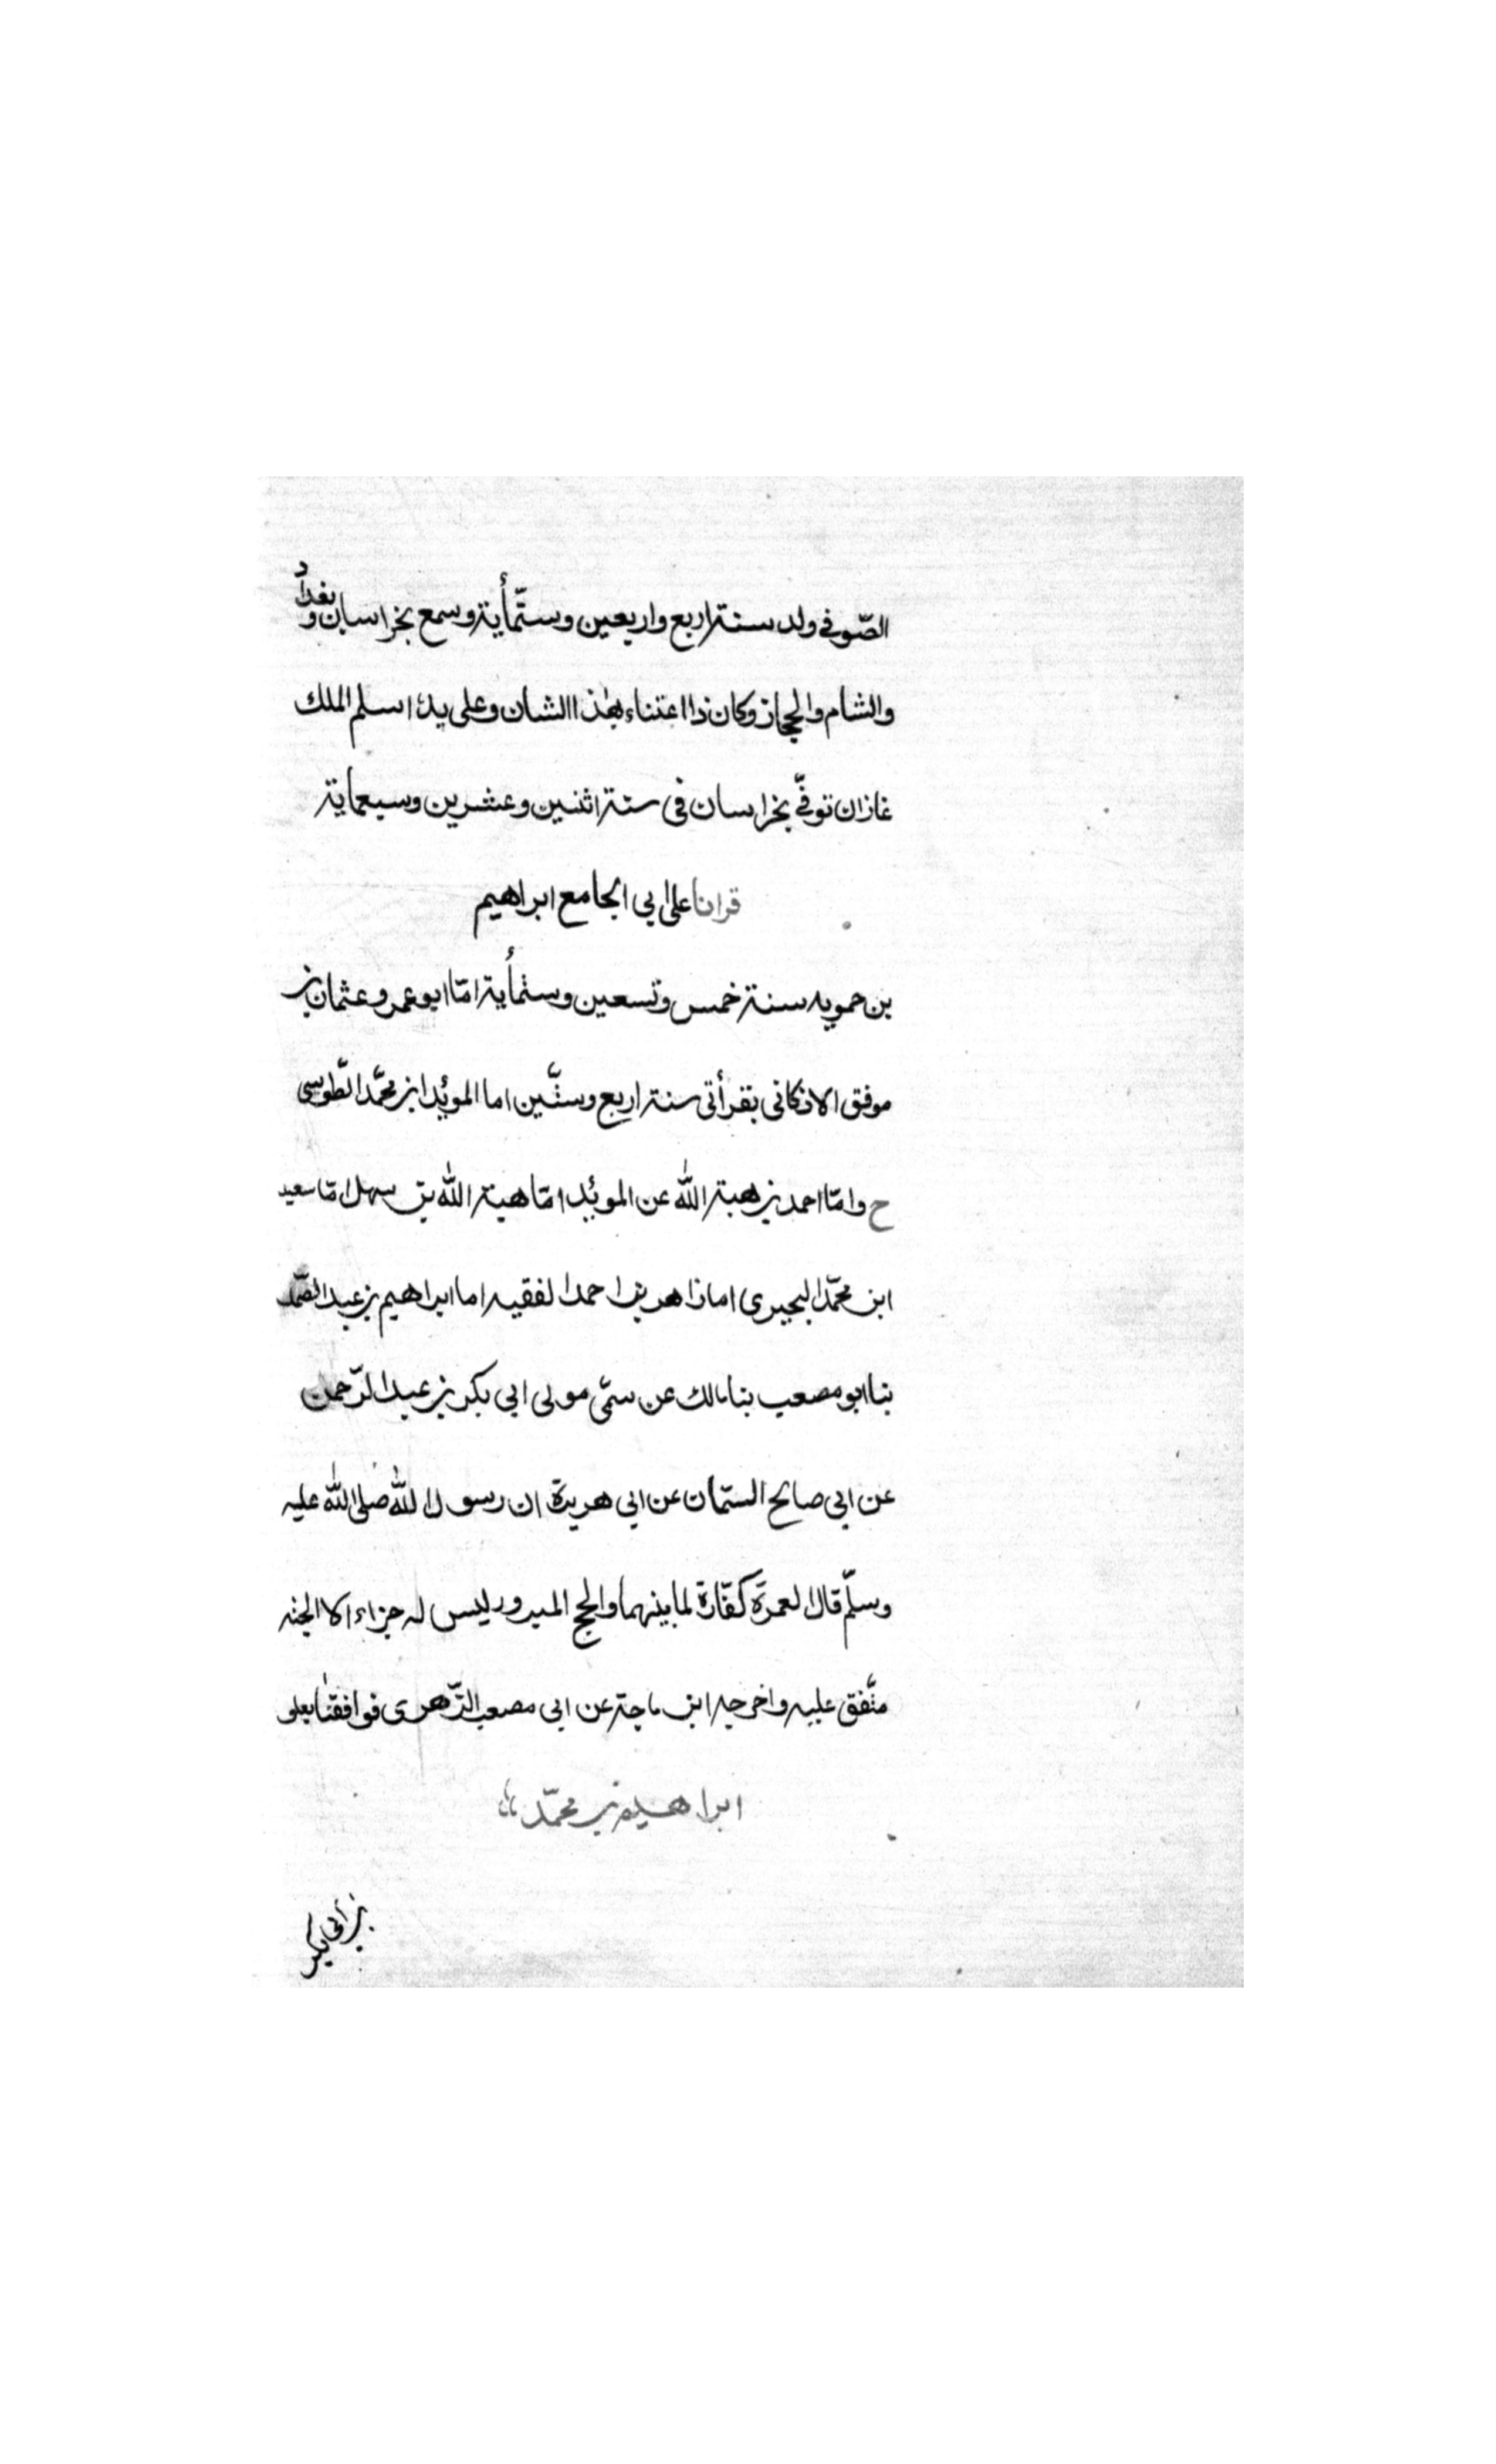 الصّوفي ولد سنة اربع واربعين وستّمأية وسمع بخراسان وبغداد
والشام والحجاز وكان ذا اعتناء بهذا الشان وعلى يده اسلم الملك
غازان توفّي بخراسان فى سنة اثنين وعشرين وسبعماية
قرانا على ابي الجامع ابراهيم
بن حمويه سنة خمس وتسعين وستمأية امّا ابو عمرو عثمان بن
موفق الاذكانى بقرأتى سنة اربع وستّين اما الموئد ابن محمّد الطّوسى
ح وامّا احمد بن هبة الله عن الموئد امّا هبة الله بن سهل امّا سعيد
ابن محمّد البجيرى اما زاهر بن احمد الفقيه اما ابراهيم بن عبد الصّمد
بنا ابو مصعب بنا مالك عن سمّى مولى ابى بكر بن عبد الرّحمن
عن ابي صالح السّمان عن ابي هريرة ان رسول الله صلى الله عليه
وسلّم قال العمرة كفّارة لما بينهما والحج المبرور ليس له جزاء الا الجنه
متّفق عليه واخرجه ابن ماجة عن ابى مصعب الزّهرى فوافقنا بعلو
ابراهيم بن محمّد
بن أبي بكر